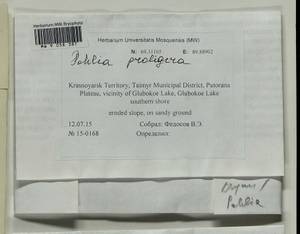 Herbarium MW, Bryophyta
Herbarium Universitatis Mosquensis (MW)
Pohlia proligera
Krasnoyarsk Territory, Taimyr Municipal District, Putorana
Plateau, vicinity of Glubokoe Lake, Glubokoe Lake
southern shore
eroded slope, on sandy ground
12.07.15 Собрал: Федосов В.Э.
№ 15-0168 Определил:
Bryum /
Pohlia